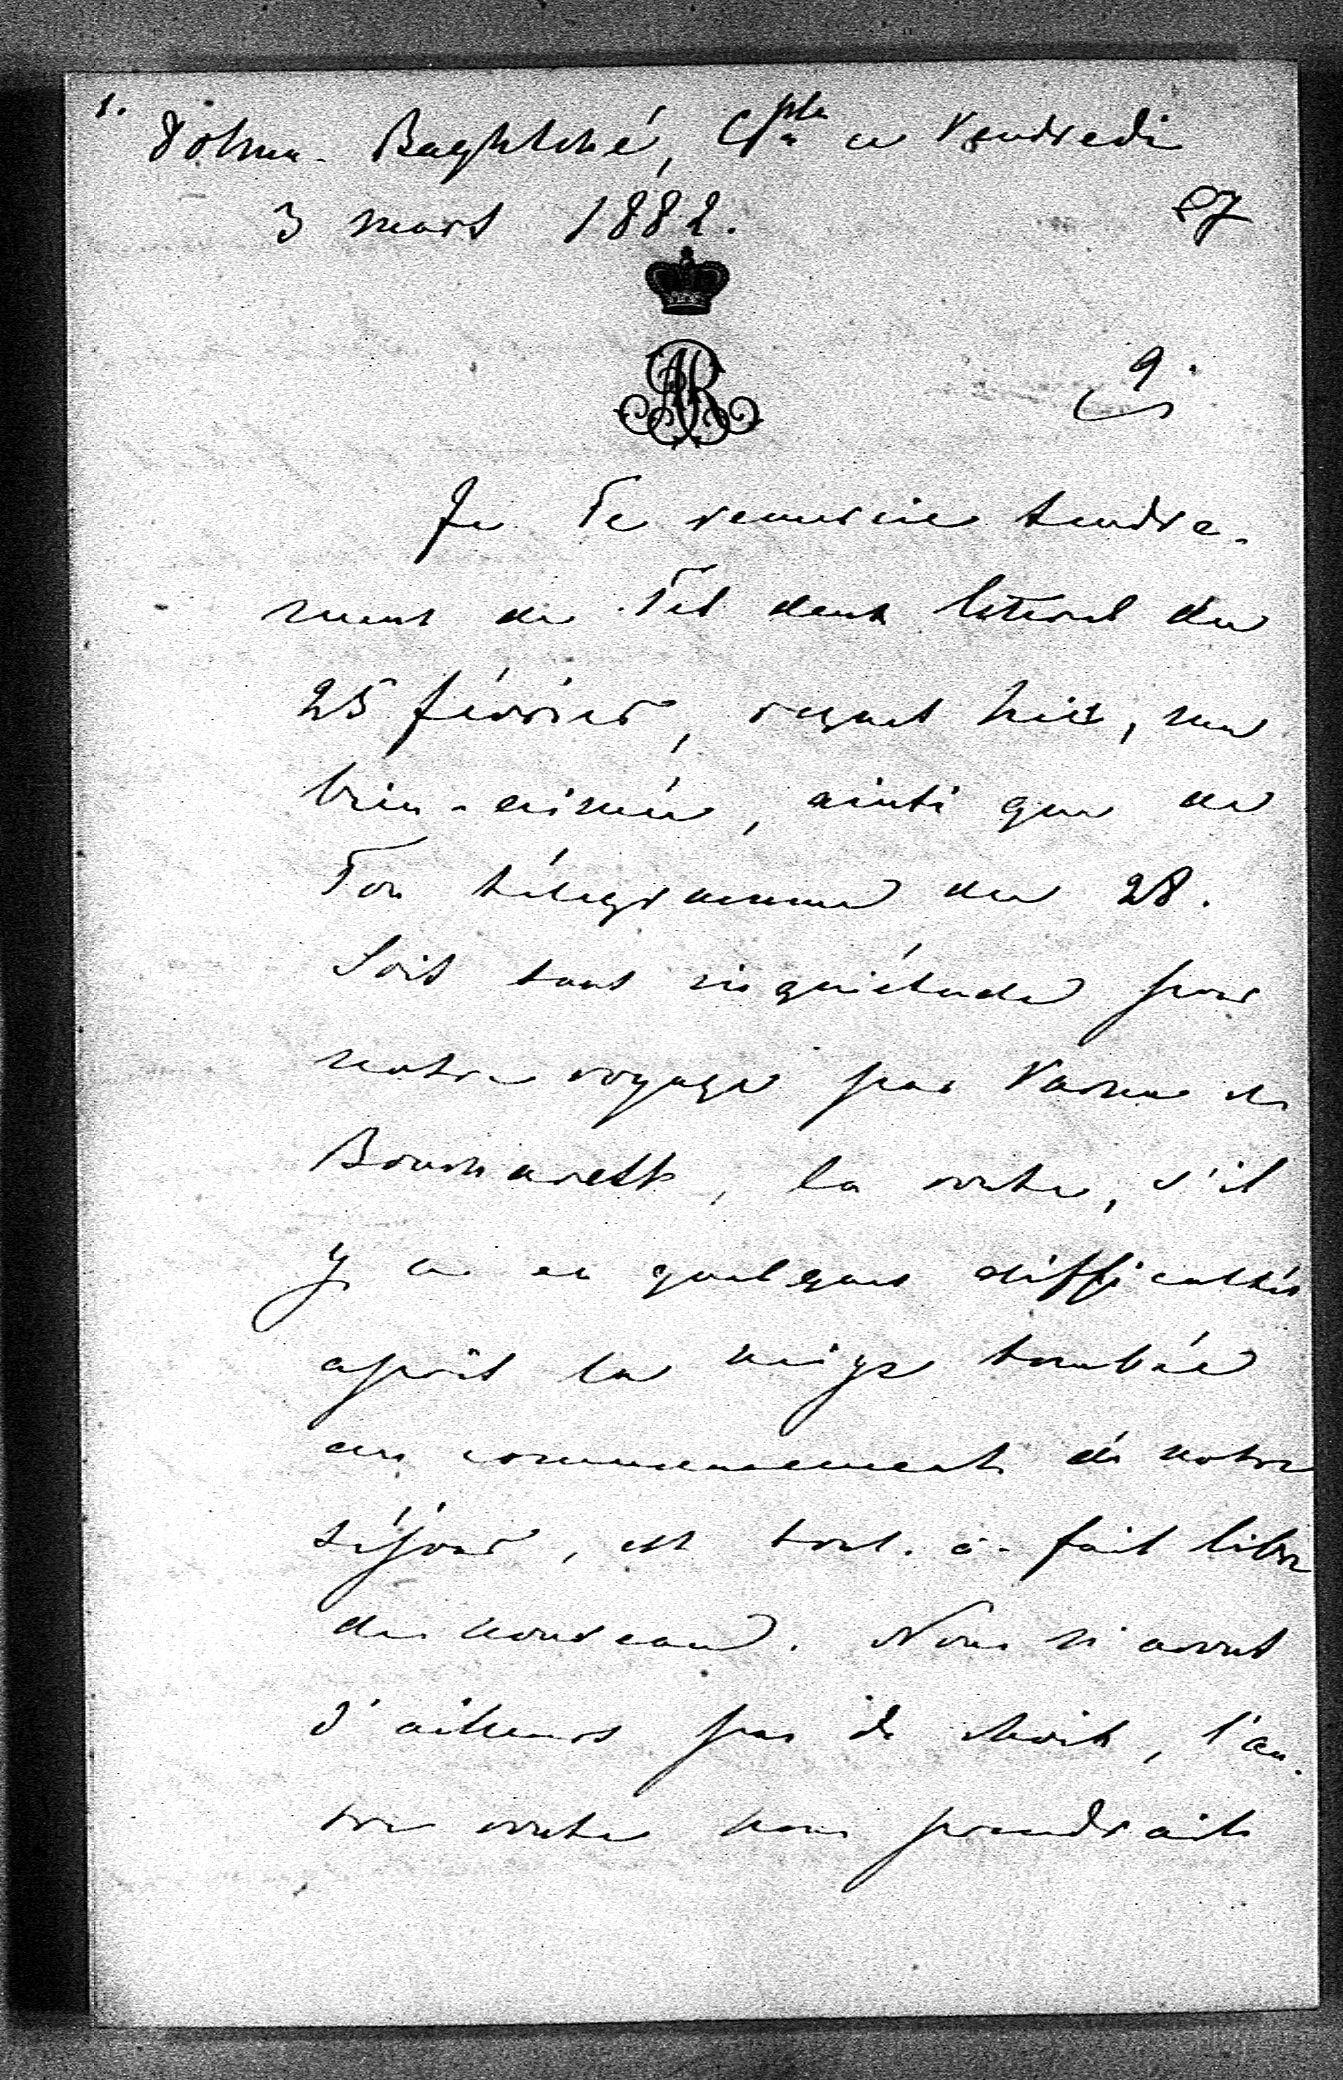 1.
Dolma-Baghtché, Cple ce Vendredi
3 mars 1882.
87
AR
9.
Je Te remercie tendre-
ment de Tes deux lettres du
25 février, reçues hier, ma
bien-aimée, ainsi que de
Ton télégramme du 28.
Sois sans inquiétude pour
notre voyage par Varna et
Boucharest, la route, s'il
y a eu quelques difficultés
après la neige tombée
au commencement de notre
séjour, est tout-à-fait libre
de nouveau. Nous n'avons
d'ailleurs pas de choix, l'au-
tre route nous prendrait